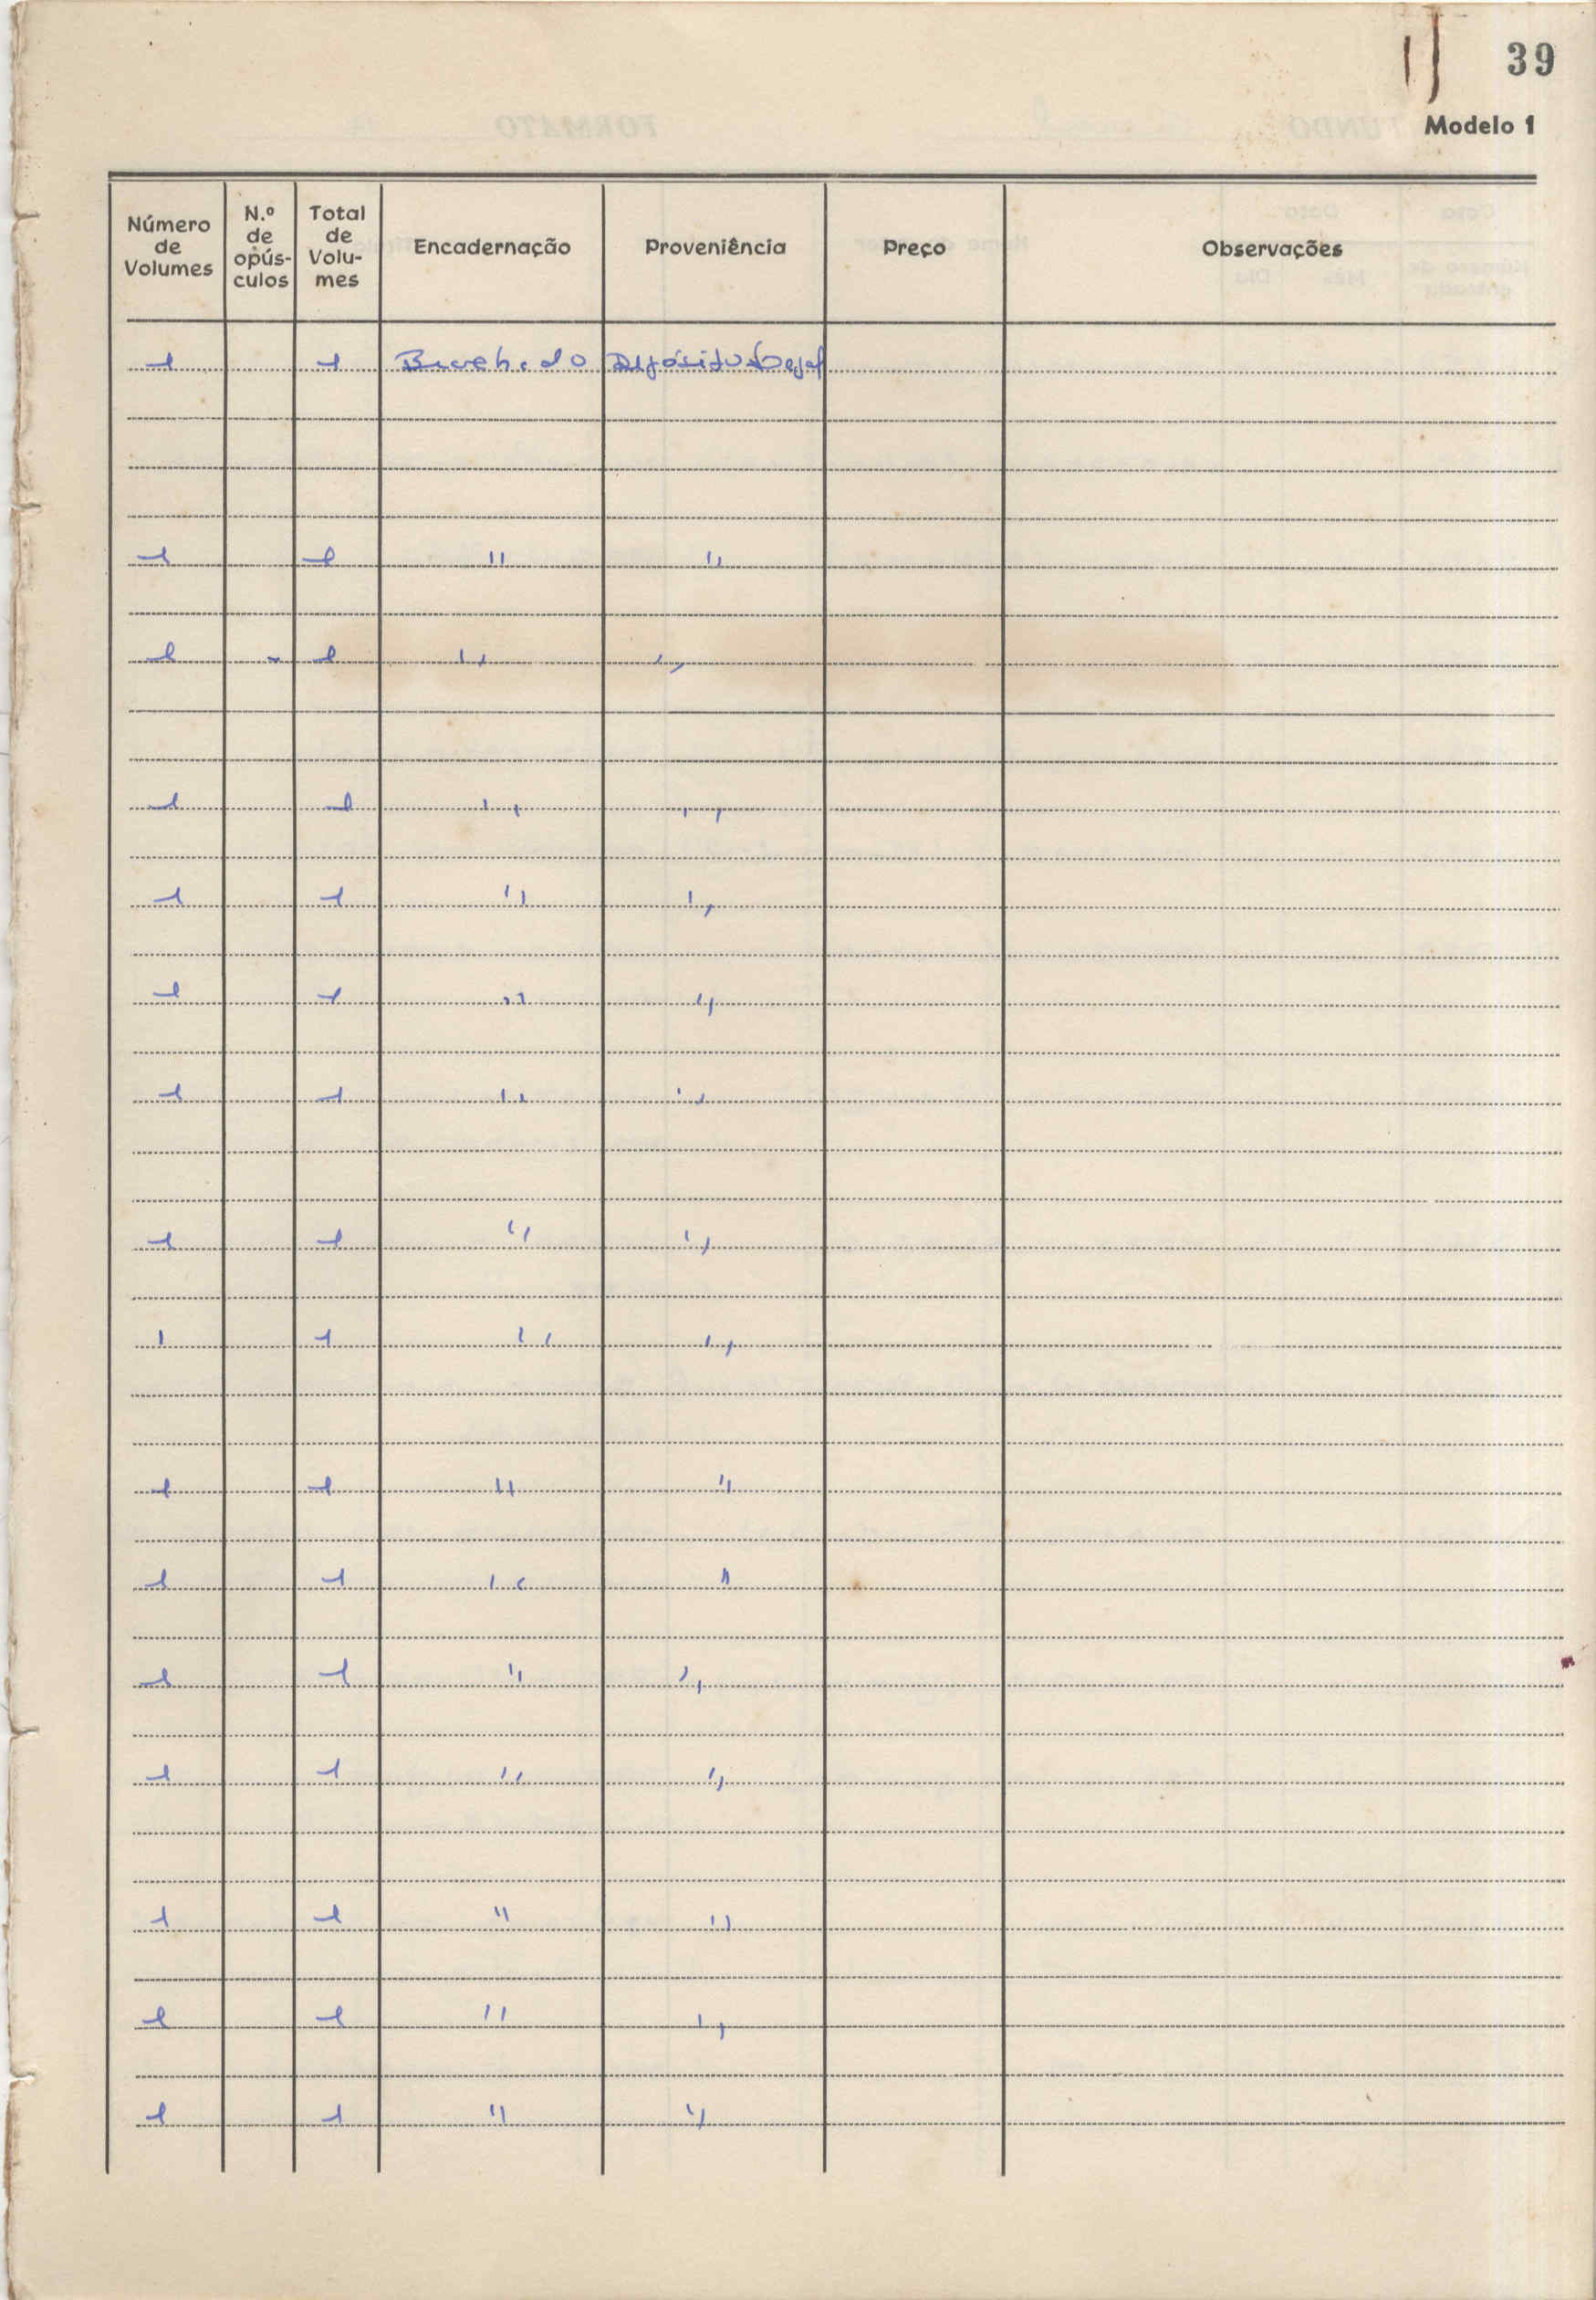 39
Modelo 1
Número de Volumes | N.º de opús-culos | Total de Volu-mes | Encadernação | Proveniência | Preço | Observações
1 | | 1 | Broch.do | Depósito Legal
1 | | 1 | " | "
1 | - | 1 | " | "
1 | | 1 | " | "
1 | | 1 | " | "
1 | | 1 | " | "
1 | | 1 | " | "
1 | | 1 | " | "
1 | | 1 | " | "
1 | | 1 | " | "
1 | | 1 | " | "
1 | | 1 | " | "
1 | | 1 | " | "
1 | | 1 | " | "
1 | | 1 | " | "
1 | | 1 | " | "